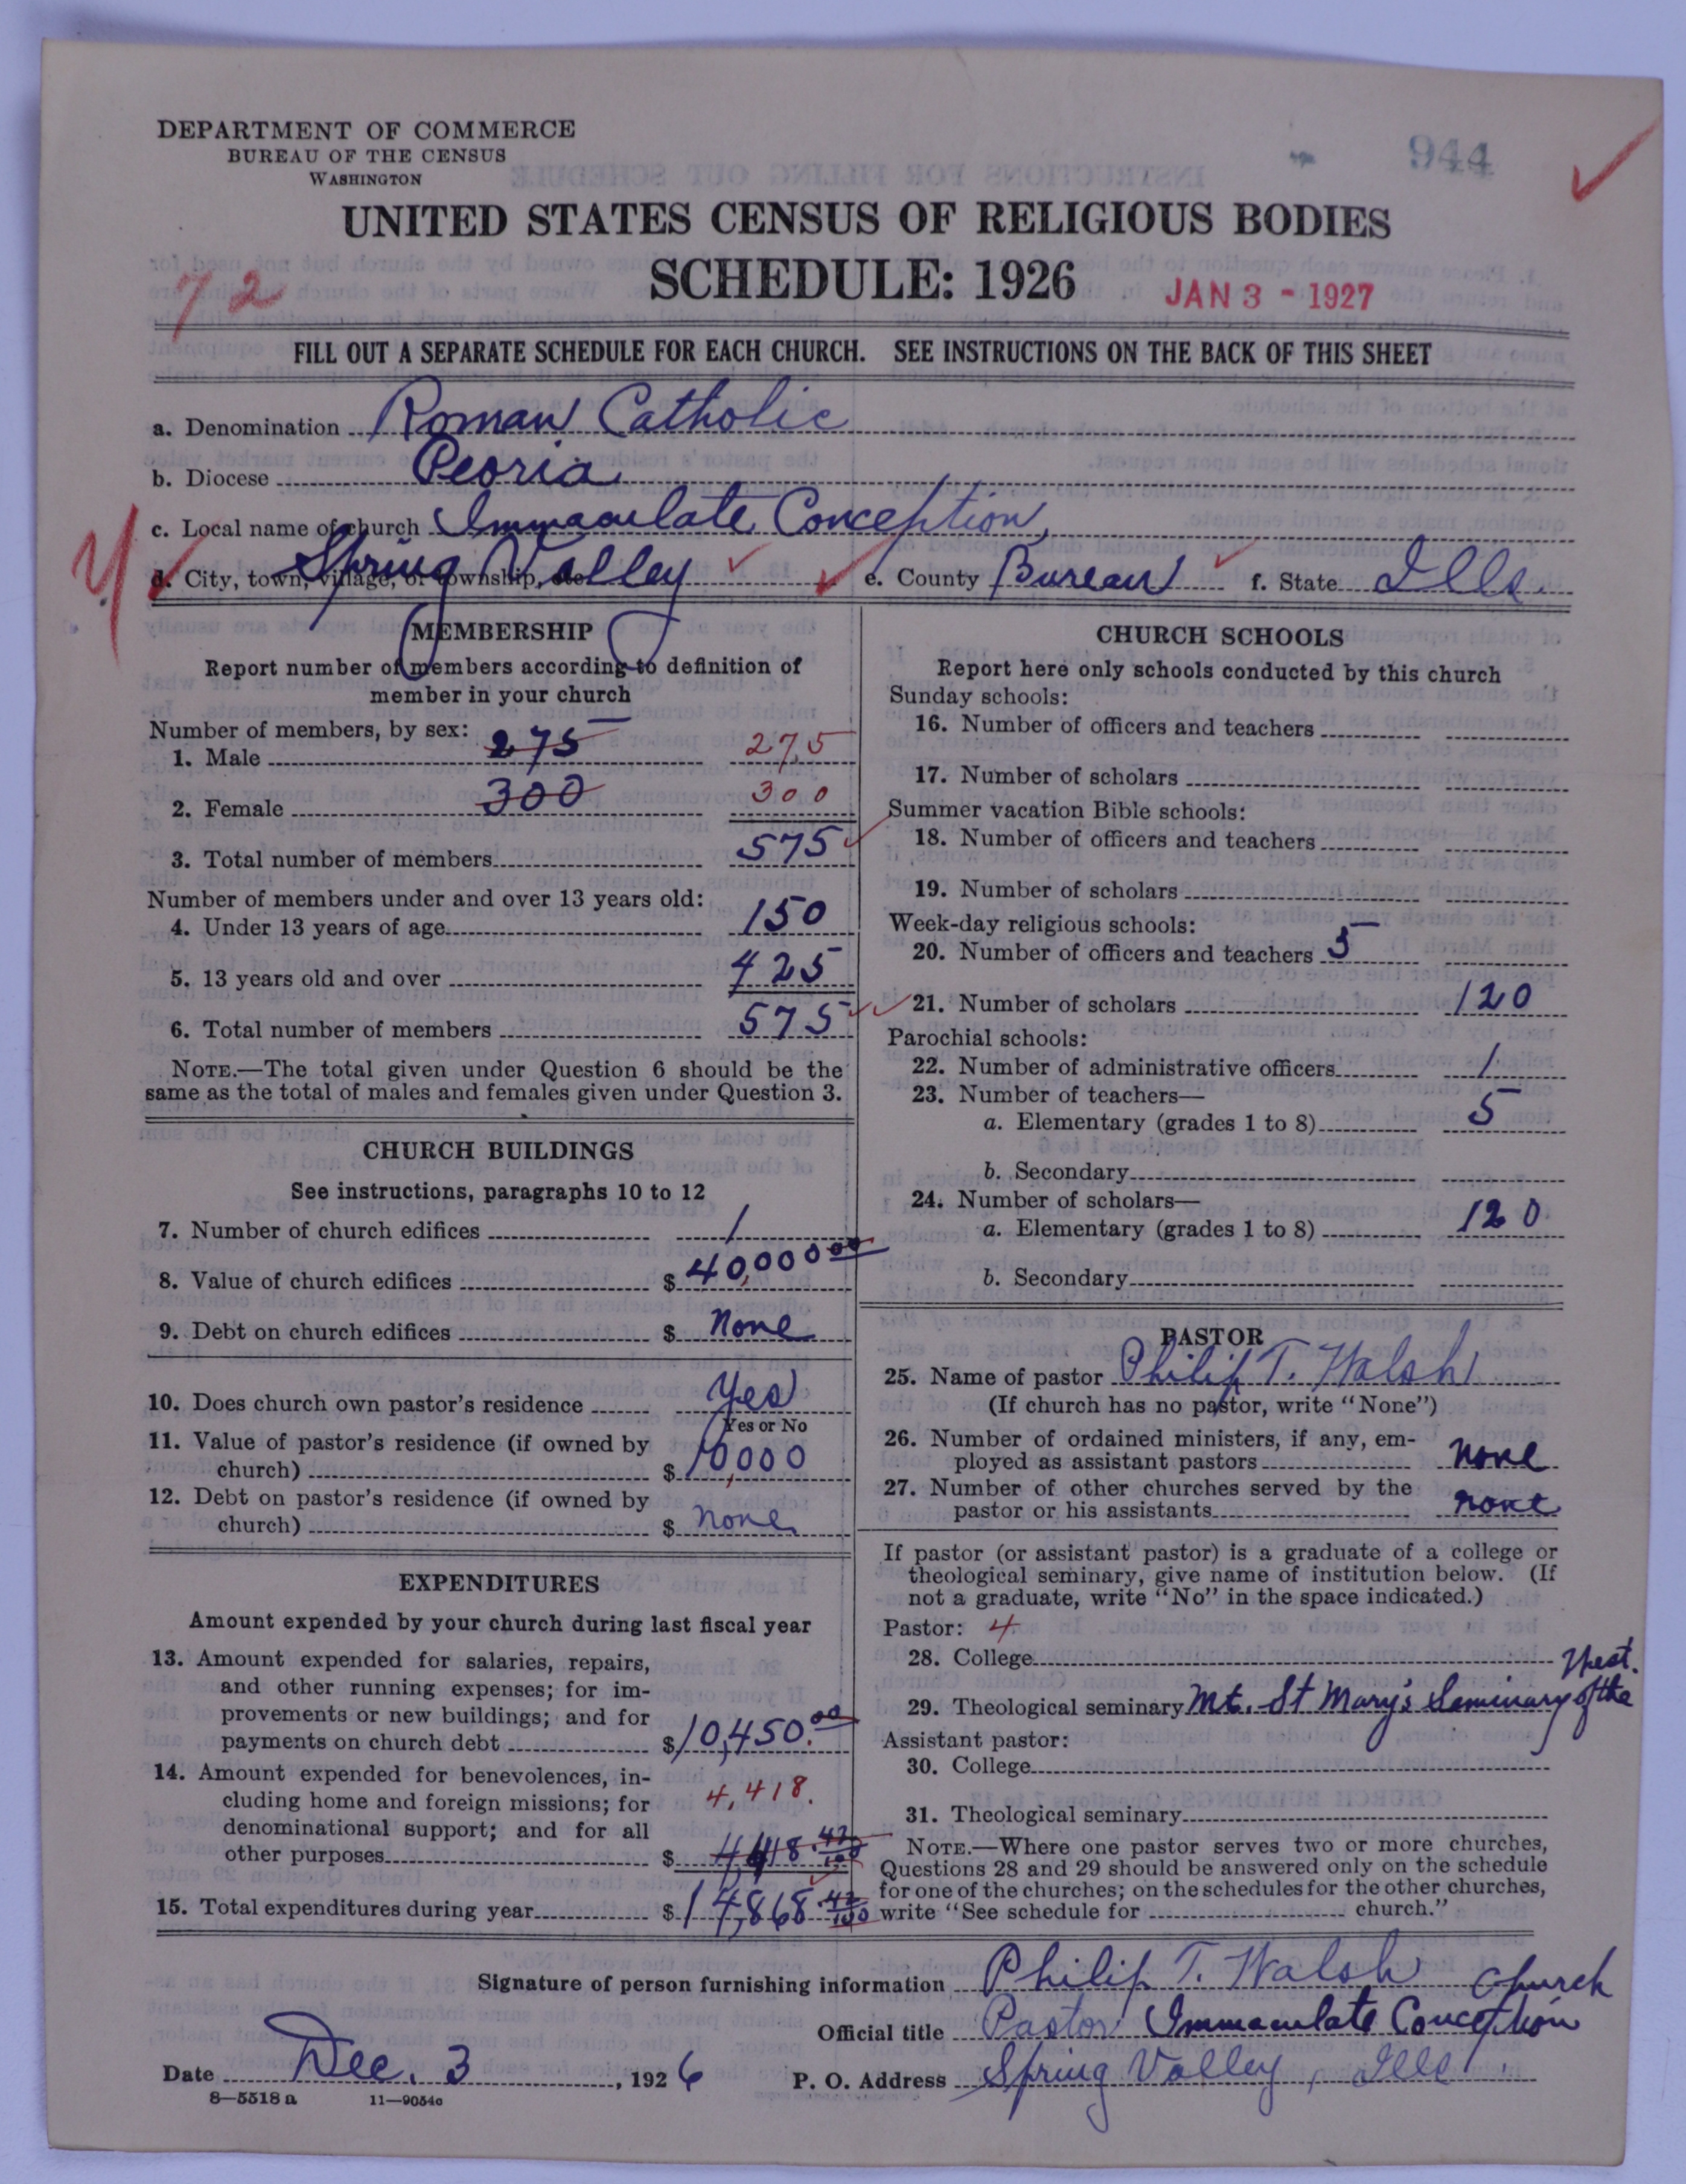 DEPARTMENT OF COMMERCE
BUREAU OF THE CENSUS
WASHINGTON
944
UNITED STATES CENSUS OF RELIGIOUS BODIES
72
SCHEDULE: 1926
JAN 3 - 1927
FILL OUT A SEPARATE SCHEDULE FOR EACH CHURCH. SEE INSTRUCTIONS ON THE BACK OF THIS SHEET
a. Denomination Roman Catholic
b. Diocese Peoria
c. Local name of church Immaculate Conception,
d. City, town, village, or township, etc. Spring Valley e. County Bureau f. State Ills.
MEMBERSHIP
Report number of members according to definition of
member in your church
Number of members, by sex:
1. Male 275 275
2. Female 300 300
3. Total number of members 575
Number of members under and over 13 years old:
4. Under 13 years of age 150
5. 13 years old and over 425
6. Total number of members 575
NOTE.—The total given under Question 6 should be the
same as the total of males and females given under Question 3.
CHURCH BUILDINGS
See instructions, paragraphs 10 to 12
7. Number of church edifices 1
8. Value of church edifices $ 40,000 00
9. Debt on church edifices $ None
10. Does church own pastor's residence Yes
Yes or No
11. Value of pastor's residence (if owned by
church) $ 10,000
12. Debt on pastor's residence (if owned by
church) $ none
EXPENDITURES
Amount expended by your church during last fiscal year
13. Amount expended for salaries, repairs,
and other running expenses; for im-
provements or new buildings; and for
payments on church debt $ 10,450.00
14. Amount expended for benevolences, in-
cluding home and foreign missions; for 4,418.
denominational support; and for all
other purposes $ 4418 42/100
15. Total expenditures during year $ 14,868 42/100
CHURCH SCHOOLS
Report here only schools conducted by this church
Sunday schools:
16. Number of officers and teachers
17. Number of scholars
Summer vacation Bible schools:
18. Number of officers and teachers
19. Number of scholars
Week-day religious schools:
20. Number of officers and teachers 5
21. Number of scholars 120
Parochial schools:
22. Number of administrative officers 1
23. Number of teachers—
a. Elementary (grades 1 to 8) 5
b. Secondary
24. Number of scholars—
a. Elementary (grades 1 to 8) 120
b. Secondary
PASTOR
25. Name of pastor Philip T. Walsh
(If church has no pastor, write "None")
26. Number of ordained ministers, if any, em-
ployed as assistant pastors none
27. Number of other churches served by the
pastor or his assistants none
If pastor (or assistant pastor) is a graduate of a college or
theological seminary, give name of institution below. (If
not a graduate, write "No" in the space indicated.)
Pastor: 4
28. College
29. Theological seminary Mt. St Mary's Seminary of the West.
Assistant pastor:
30. College
31. Theological seminary
NOTE.—Where one pastor serves two or more churches,
Questions 28 and 29 should be answered only on the schedule
for one of the churches; on the schedules for the other churches,
write "See schedule for church."
Signature of person furnishing information Philip T. Walsh
Official title Pastor Immaculate Conception Church
Date Dec. 3, 1926 P. O. Address Spring Valley, Ills.
8—5518 a 11—9054a